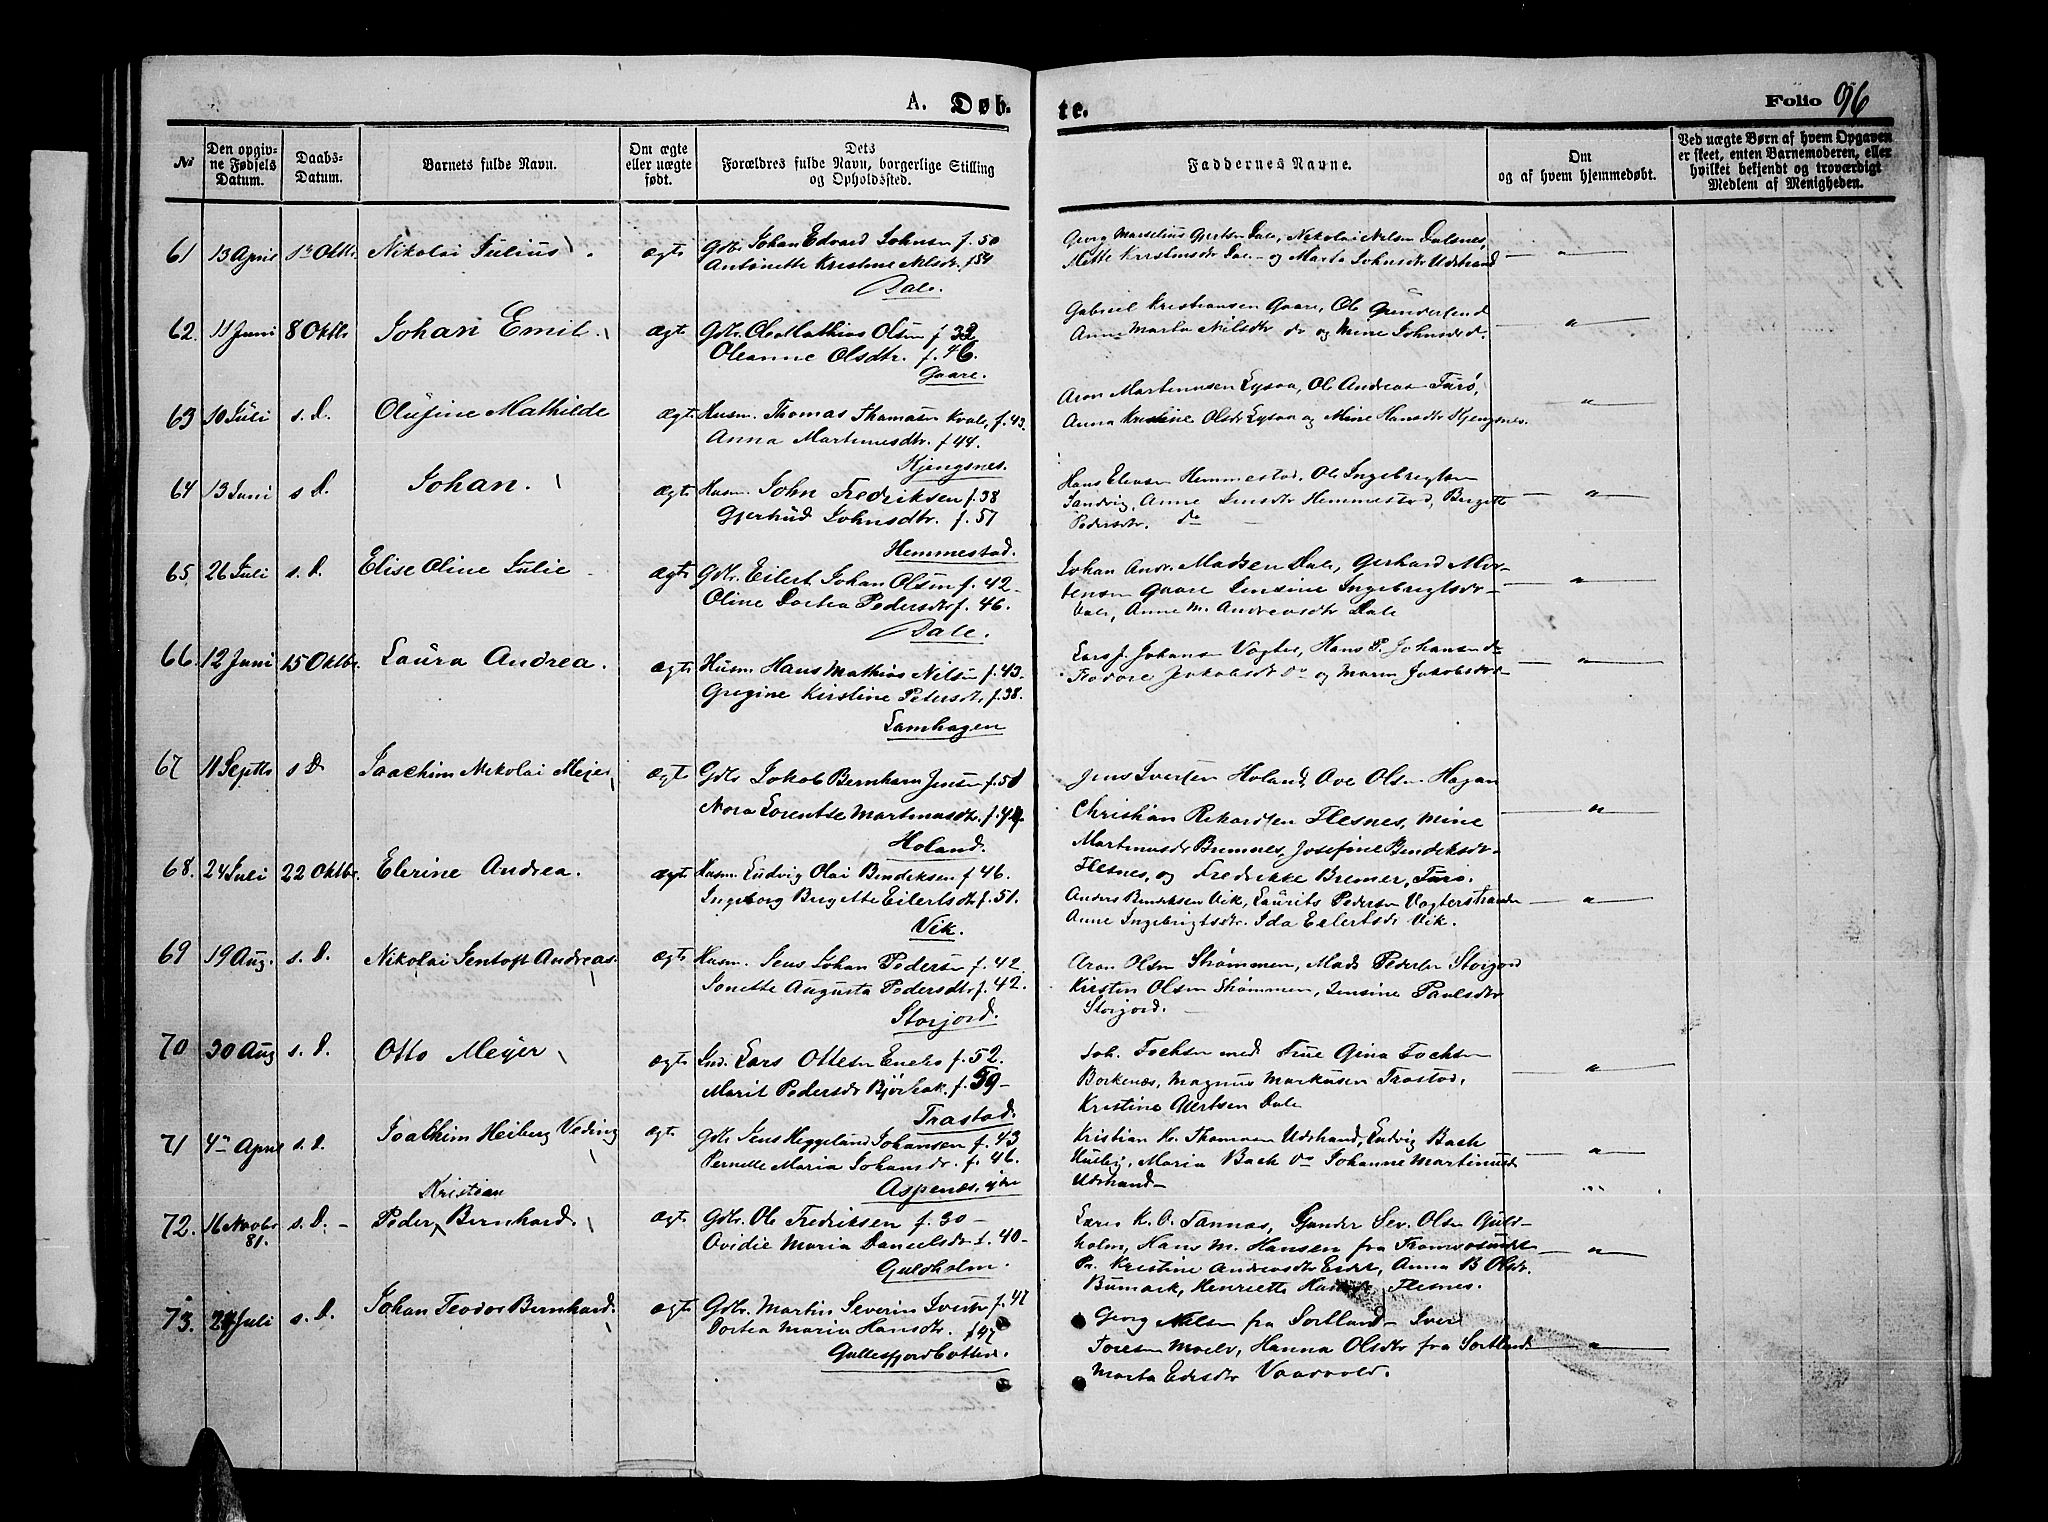 A. Døb-
te.
Folio 96
No
Den opgiv-
ne Fødsels
Datum.
Daabs-
Datum.
Barnets fulde Navn.
Om ægte
eller uægte
født.
Dets
Forældres fulde Navn, borgerlige Stilling
og Opholdssted.
Faddernes Navne.
Om
og af hvem hjemmedøbt.
Ved uægte Børn af hvem Opgaven
er skeet, enten Barnemoderen, eller
hvilket bekjendt og troværdigt
Medlem af Menigheden.
61 13 April 1ste Oktbr. Nikolai Julius ægte Gdbr. Johan Edvard Johnsen f. 50
Antonette Kristine Nilsdtr. f 54
Dale.
Georg Marselius Gjertsen Dale, Nikolai Nilsen Dalsnes,
Mette Kristensdtr Dale og Marta Johnsdtr Udstrand
62. 11 Juni 8 Oktbr Johan Emil ægte Gdbr. Ole Mathias Olsen f 32
Oleanne Olsdtr. f. 46.
Gaare.
Gabriel Kristiansen Gaare, Ole
Anne Marta Nilsdtr do og Mine Johnsdtr do.
63 10 Juli s. D. Olufine Mathilde ægte Husm. Thomas Thomassen Kvale, f. 43.
Anna Martinusdtr. f 44.
Kjengsnes.
Aron Martinussen Lysaa, Ole Andreas Turø,
Anna Kristine Olsdtr Lysaa og Mine Hansdtr Kjengsnes.
64 13 Juni s D. Johan. ægte Husm. John Fredriksen f. 38
Gjertrud Johnsdtr. f. 57
Hemmestad.
Hans Hemmestad, Ole Ingebrigtsen
Sandvig, Anne Jensdtr Hemmestad, Birgitte
Pedersdtr. do
65. 26 Juli s. D. Elise Oline Julie ægte Gdbr. Eilert Johan Olsen f. 42
Oline Dortea Pedersdtr f. 46.
Dale.
Johan Andr. Madsen Dale, Gerhard Mor-
tensen Gaare Jensine Ingebrigtsdtr
Dale, Anne M. Andreasdtr Dale
66. 12 Juni 15 Oktbr. Laura Andrea. ægte Husm. Hans Mathias Nilsen f. 43.
Gregine Kirstine Petersdtr f. 38.
Lamhagen
Lars J. Johansen Vogter, Hans P. Johansen do
Jakobsdtr do og Maren Jakobsdtr do
67 11 Septbr s D. Joachim Nikolai Mejer ægte Gdbr Jakob Bernham Jensen f. 50
Nora Lorentse Martinusdtr. f. 44
Holand.
Jens Iversen Holand, Ove Olsen Hagan
Christian Rikardsen Flesnes, Mine
Martinusdtr Bremnes, Josefine Bendiksdtr
Flesnes, og Fredrikke Bremer, Turø.
68. 24 Juli 22 Oktbr. Elerine Andrea. ægte Husm. Ludvig Olai Bendiksen f 46.
Ingeborg Birgitte Eilertsdtr f. 51.
Vik.
Anders Bendiksen Vik, Laurits Pedersen Vogterstranden
Anne Ingebrigtsdtr. Ida Eilertsdtr Vik.
69 19 Aug. s. D. Nikolai Jentoft Andreas. ægte Husm. Jens Johan Pedersen f. 42.
Jonette Augusta Pedersdtr f. 42.
Storjord.
Aron Olsen Strømmen, Mads Pedersen Storjord
Kirsten Olsen Strømmen, Jensine Paulsdtr
Storjord.
70 30 Aug s. D. Otto Mejer ægte Ind. Lars Ottesen f. 52.
Marit Pedersdtr f. 59
Trastad.
Joh. Fochsen med Frue Gina Fochsen
Borkenæs, Magnus Markusen Trastad,
Kristine Gjertsen Dale
71 4de April s. D. Joachim Heiberg Veding ægte Gdbr Jens Heggelund Johansen f. 43
Pernelle Maria Johansdtr. f. 46.
Aspenæs,
Kristian K. Thomasen Udstrand, Ludvig Bach
Husby, Maria Bach do Johanne Martinusdtr
Udstrand
72. 16 Novbr 81. s. D. Peder Kristian Bernhard ægte Gdbr. Ole Fredriksen f. 30
Ovidie Maria Danielsdtr f. 40
Guldholm.
K. O. Tannas, Peder Sev. Olsen Guld-
holm, Hans M. Hansen fra Tromsøsundet
P. Kristine Andreasdtr Anna B Olsdtr.
Henriette Flesnes.
73. 24 Juli s. D. Johan Teodor Bernhard. ægte Gdbr. Martin Severin Iversen f. 47
Dortea Maria Hansdtr. f 47
Gullesfjordbotten.
Georg Nilsen fra Sortland Iver
Toresen Moelv, Hanna Olsdtr fra Sortland
Marta